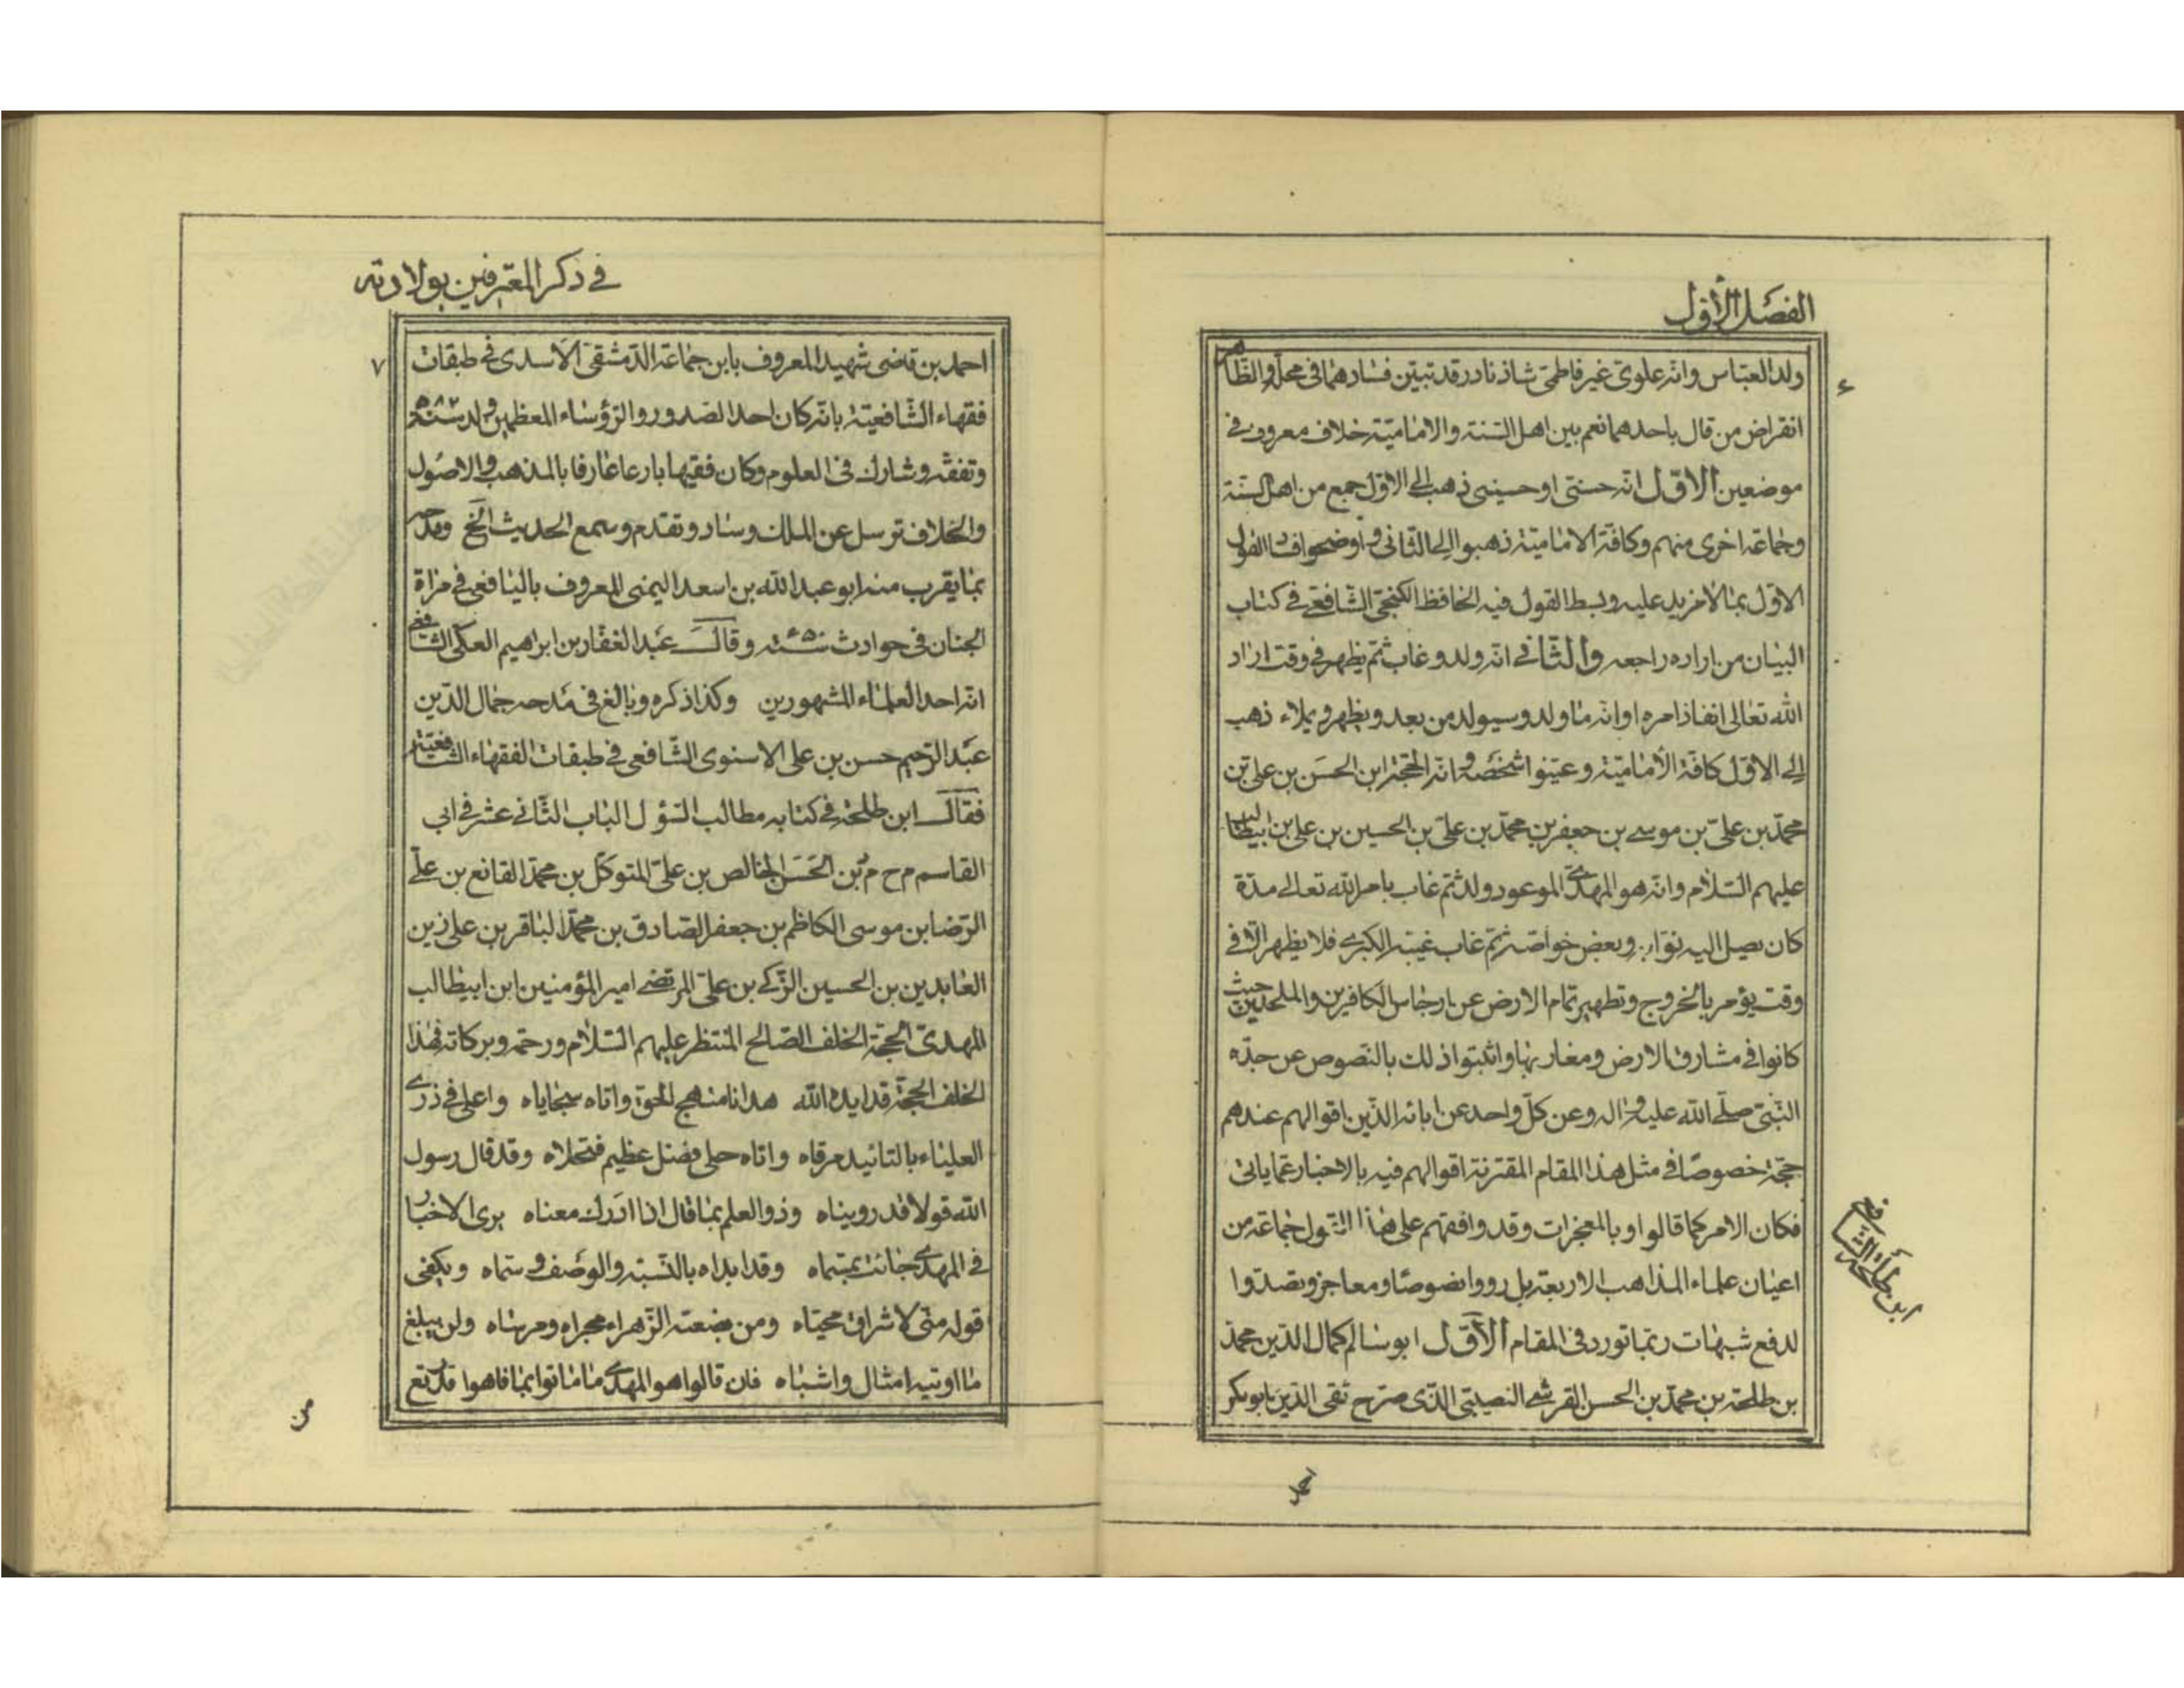 الفصل الأول
٤
ولد العباس وانه علوى غير فاطمى شاذ نادر قد تبين فسادهما فى محله والظاهر
انقراض من قال باحدهما نعم بين اهل السنة والامامية خلاف معروف فى
موضعين الاول انه حسنى او حسينى ذهب الى الاول جمع من اهل السنة
وجماعة اخرى منهم وكافة الامامية ذهبوا الى الثانى واوضحوا فساد القول
الاول بما لا مزيد عليه وبسط القول فيه الحافظ الكنجى الشافعى فى كتاب
البيان من اراده راجعه والثانى انه ولد وغاب ثم يظهر فى وقت اراد
الله تعالى انفاذ امره او انه ما ولد وسيولد من بعد ويظهر ويملاء ذهب
الى الاول كافة الأمامية وعينوا شخصه وانه الحجة ابن الحسن بن على بن
محمد بن على بن موسى بن جعفر بن محمد بن على بن الحسين بن على بن ابيطالب
عليهم السلام وانه هو المهدى الموعود ولد ثم غاب بامر الله تعالى مدة
كان يصل اليه نوابه وبعض خواصه ثم غاب غيبته الكبرى فلا يظهر الا فى
وقت يؤمر بالخروج وتطهير تمام الارض عن ارجاس الكافرين والملحدين حيث
كانوا فى مشارق الارض ومغاربها واثبتوا ذلك بالنصوص عن جده
النبى صلى الله عليه واله وعن كل واحد عن ابائه الذين اقوالهم عندهم
حجة خصوصا فى مثل هذا المقام المقترنة اقوالهم فيه بالاخبار عما ياتى
فكان الامر كما قالوا وبالمعجزات وقد وافقهم على هذا القول جماعة من
اعيان علماء المذاهب الاربعة بل رووا نصوصا ومعاجز وتصدوا
لدفع شبهات ربما تورد فى المقام الأول ابو سالم كمال الدين محمد
بن طلحة بن محمد بن الحسن القرشى النصيبى الذى صرح تقى الدين ابو بكر
ابن طلحة الشافعى
احمد
فى ذكر المعترفين بولادته
٧
احمد بن قاضى شهبه المعروف بابن جماعة الدمشقى الأسدى فى طبقات
فقهاء الشافعية بانه كان احد الصدور والرؤساء المعظمين ولد سنة ٥٨٢
وتفقه وشارك فى العلوم وكان فقيها بارعا عارفا بالمذهب والاصول
والخلاف ترسل عن الملك وساد وتقدم وسمع الحديث الخ ومدحه
بما يقرب منه ابو عبد الله بن اسعد اليمنى المعروف باليافعى فى مراة
الجنان فى حوادث سنة ٦٥٠ وقال عبد الغفار بن ابراهيم العكى الشافعى
انه احد العلماء المشهورين وكذا ذكره وبالغ فى مدحه جمال الدين
عبد الرحيم حسن بن على الاسنوى الشافعى فى طبقات الفقهاء الشافعية
فقال ابن طلحة فى كتابه مطالب السؤل الباب الثانى عشر فى ابى
القاسم م ح م د بن الحسن الخالص بن على المتوكل بن محمد القانع بن على
الرضا بن موسى الكاظم بن جعفر الصادق بن محمد الباقر بن على زين
العابدين بن الحسين الزكى بن على المرتضى امير المؤمنين ابن ابيطالب
المهدى الحجة الخلف الصالح المنتظر عليهم السلام ورحمة وبركاته فهذا
الخلف الحجة قد ايده الله هدانا منهج الحق واتاه سجاياه واعلى فى ذرى
العلياء بالتائيد مرقاه واتاه حلى فضل عظيم فتحلاه وقد قال رسول
الله قولا قد رويناه وذو العلم بما قال اذا ادرك معناه يرى الاخبار
فى المهدى جائت بمسماه وقد ابداه بالنسبة والوصف وسماه ويكفى
قوله منى لاشراق محياه ومن بضعته الزهراء مجراه ومرساه ولن يبلغ
ما اوتيه امثال واشباه فان قالوا هو المهدى ما ماتوا بما فاهوا قد رتع
من